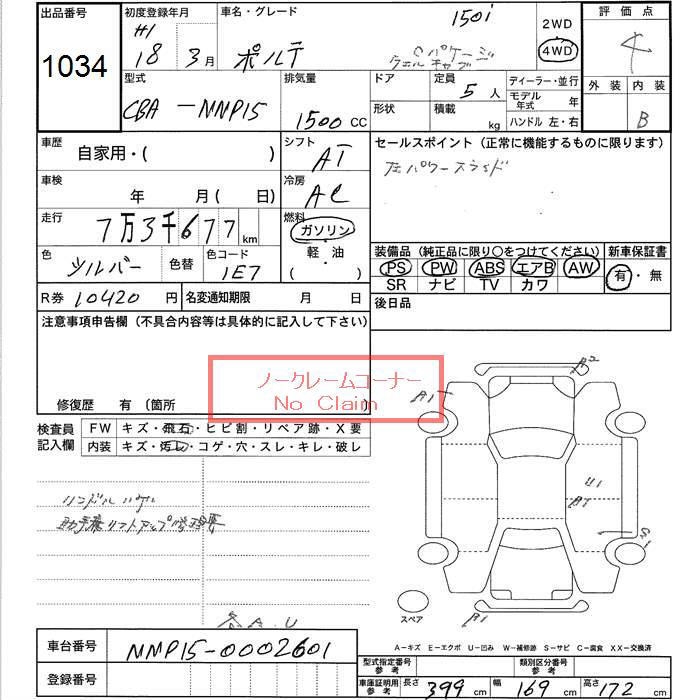 出品番号 初度登録年月 車名・グレード 150i 2WD 評価点
1034 H1 18 3月 ポルテ Cパケージ 4WD 4
ウェルキャブ
型式 排気量 ドア 定員 5人 ディーラー・並行 外装 内装
CBA-NNP15 1500CC 形状 積載 kg モデル年式 年 B
ハンドル 左・右
車歴 自家用・( ) シフト AT セールスポイント(正常に機能するものに限ります)
左パワースライド
車検 年 月( 日) 冷房 AC
走行 7万3千677km 燃料 ガソリン
軽・油
( )
色 シルバー 色替 色コード 1E7 装備品(純正品に限り○をつけてください) 新車保証書
PS PW ABS エアB AW 有・無
SR ナビ TV カワ
R券 10420円 名変通知期限 月 日 後日品
注意事項申告欄(不具合内容等は具体的に記入して下さい)
ノークレームコーナー
No Claim
修復歴 有(箇所
検査員記入欄 FW キズ・飛石・ヒビ割・リペア跡・X要
内装 キズ・汚レ・コゲ・穴・スレ・キレ・破レ
ハンドルハゲ
助手席リフトアップ
A1
U1
B1
S1
B1
スペア
A.U
A−キズ E−エクボ U−凹み W−補修跡 S−サビ C−腐食 XX−交換済
車台番号 NNP15-0002601
登録番号
型式指定番号参考 類別区分番号参考
車庫証明用参考 長さ 399cm 幅 169cm 高さ 172cm